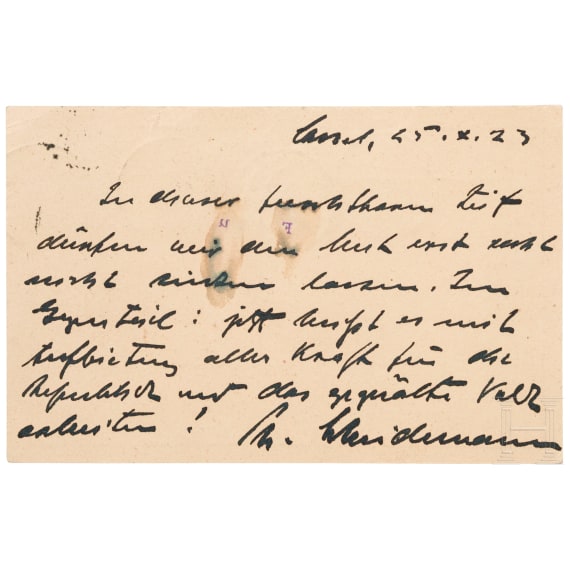 Cassel, 25.X.23
In dieser furchtbaren Zeit
dürfen wir den Mut erst recht
nicht sinken lassen. Im
Gegenteil: jetzt heißt es mit
Aufbietung aller Kraft für die
Republik und das gequälte Volk
arbeiten! Ph. Scheidemann